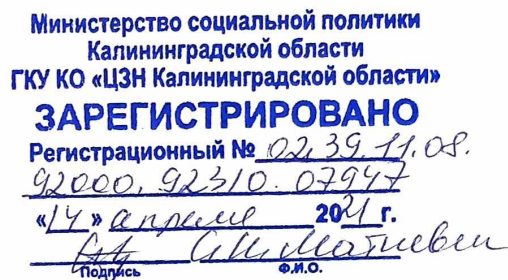 Министерство социальной политики
Калининградской области
ГКУ КО «ЦЗН Калининградской области»
ЗАРЕГИСТРИРОВАНО
Регистрационный № 02.39.11.08.
92000. 92310. 07947
«14» апреля 2021 г.
Подпись Ф.И.О.